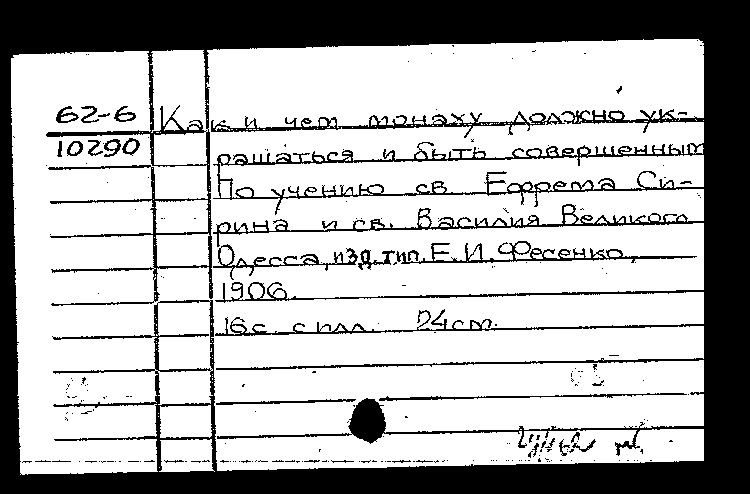 62-6 Как и чем монаху должно ук-
10290 рашаться и быть совершенным
По учению св. Ефрема Си-
рина и св. Василия Великого
Одесса, изд. тип. Е. И. Фесенко,
1906.
16 с. с илл. 24 см.